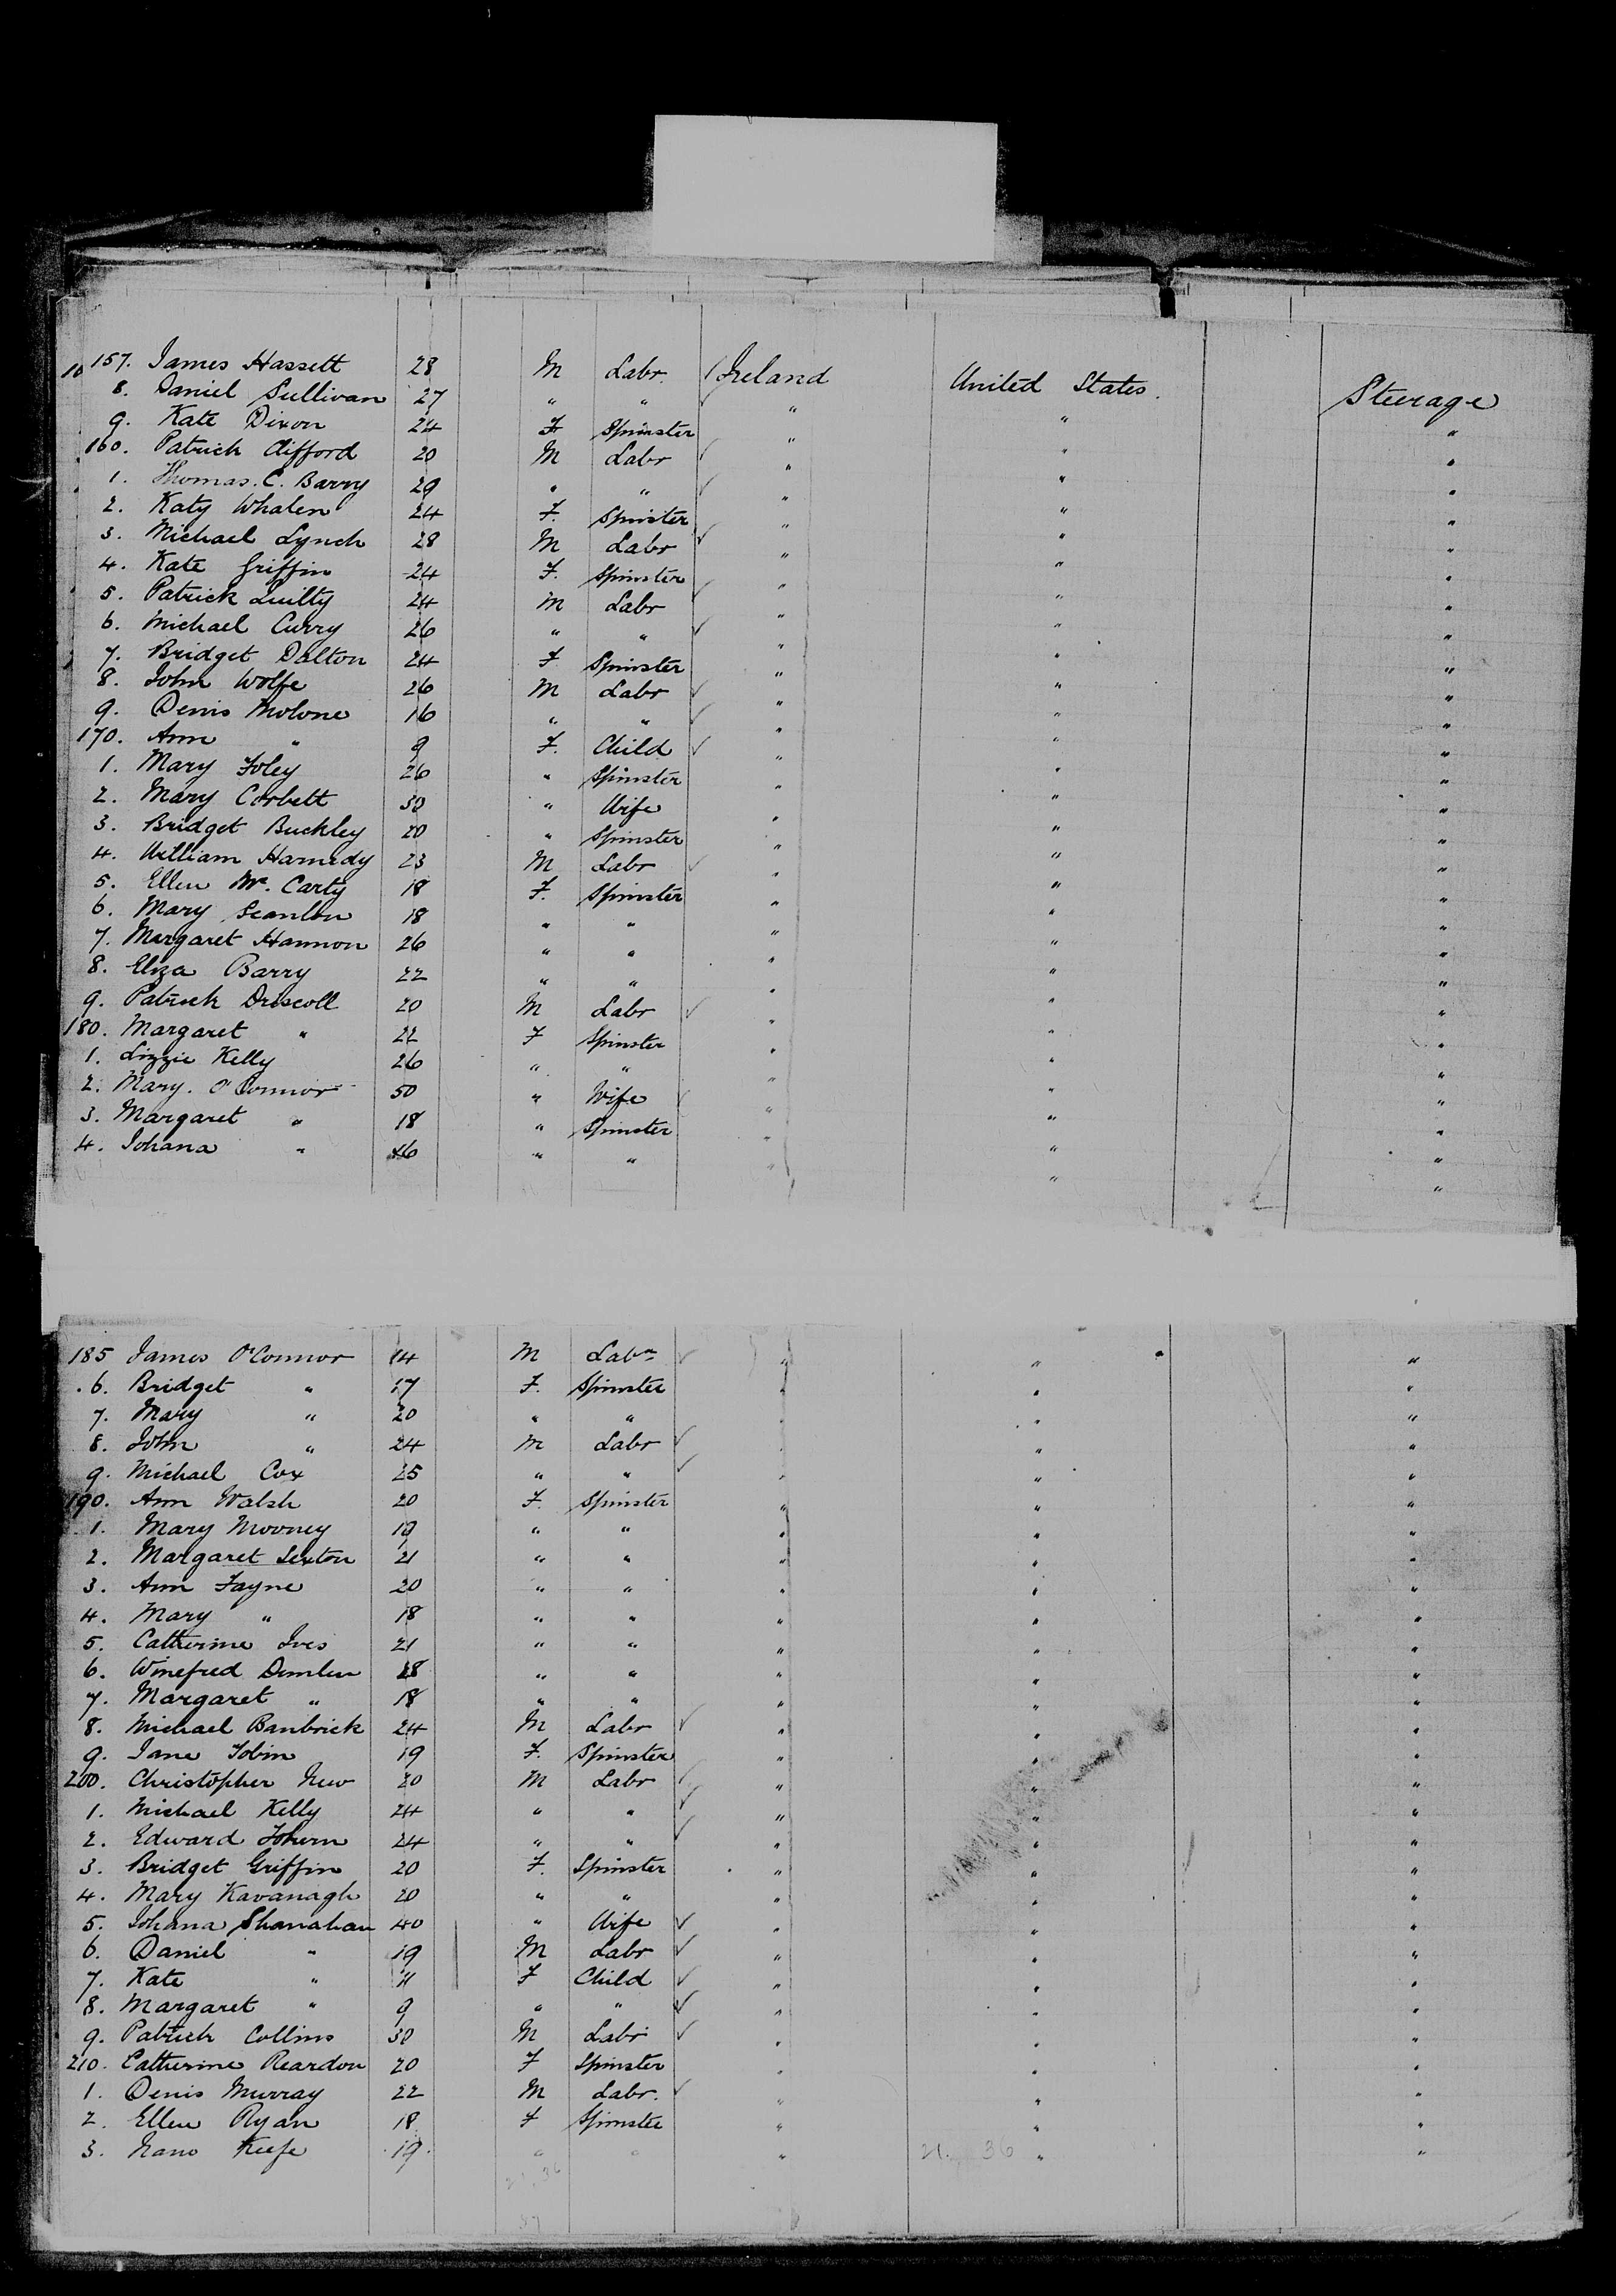 10 157. James Hassett 28 M Labr. ✓ Ireland United States. Steerage
8. Daniel Sullivan 27 " " ✓ " " "
9. Kate Dixon 24 F Spinster " " "
160. Patrick Clifford 20 M Labr ✓ " " "
1. Thomas. C. Barry 29 " " ✓ " " "
2. Katy Whalen 24 F. Spinster " " "
3. Michael Lynch 28 M Labr ✓ " " "
4. Kate Griffin 24 F. Spinster " " "
5. Patrick Quilty 24 M Labr ✓ " " "
6. Michael Curry 26 " " ✓ " " "
7. Bridget Dalton 24 F Spinster " " "
8. John Wolfe 26 M Labr ✓ " " "
9. Denis Molone 16 " " ✓ " " "
170. Ann " 9 F. Child ✓ " " "
1. Mary Foley 26 " Spinster " " "
2. Mary Corbett 30 " Wife " " "
3. Bridget Buckley 20 " Spinster " " "
4. William Hamedy 23 M Labr ✓ " " "
5. Ellen Mc. Carty 18 F. Spinster " " "
6. Mary Scanlon 18 " " " " "
7. Margaret Hannon 26 " " " " "
8. Eliza Barry 22 " " " " "
9. Patrick Driscoll 20 M Labr ✓ " " "
180. Margaret " 22 F Spinster " " "
1. Lizzie Kelly 26 " " " " "
2. Mary. O'Connor 50 " Wife ✓ " " "
3. Margaret " 18 " Spinster " " "
4. Johana " 16 " " " " "
185 James O'Connor 14 M Labr ✓ " " "
6. Bridget " 17 F. Spinster " " "
7. Mary " 20 " " " " "
8. John " 24 M Labr ✓ " " "
9. Michael Cox 25 " " ✓ " " "
190. Ann Walsh 20 F. Spinster " " "
1. Mary Mooney 19 " " " " "
2. Margaret Sexton 21 " " " " "
3. Ann Fayne 20 " " " " "
4. Mary " 18 " " " " "
5. Catherine Ives 21 " " " " "
6. Winefred 28 " " " " "
7. Margaret " 18 " " " " "
8. Michael Banbrick 24 M Labr ✓ " " "
9. Jane Tobin 19 F. Spinster " " "
200. Christopher New 20 M Labr ✓ " " "
1. Michael Kelly 24 " " ✓ " " "
2. Edward 24 " " ✓ " " "
3. Bridget Griffin 20 F. Spinster " " "
4. Mary Kavanagh 20 " " " " "
5. Johana Shanahan 40 " Wife ✓ " " "
6. Daniel " 19 M Labr ✓ " " "
7. Kate " 11 F Child ✓ " " "
8. Margaret " 9 " " ✓ " " "
9. Patrick Collins 30 M Labr ✓ " " "
210. Catherine Reardon 20 F Spinster " " "
1. Denis Murray 22 M Labr. ✓ " " "
2. Ellen Ryan 18 F Spinster " " "
3. Nano Keefe 19. " " " 21. 36 " "